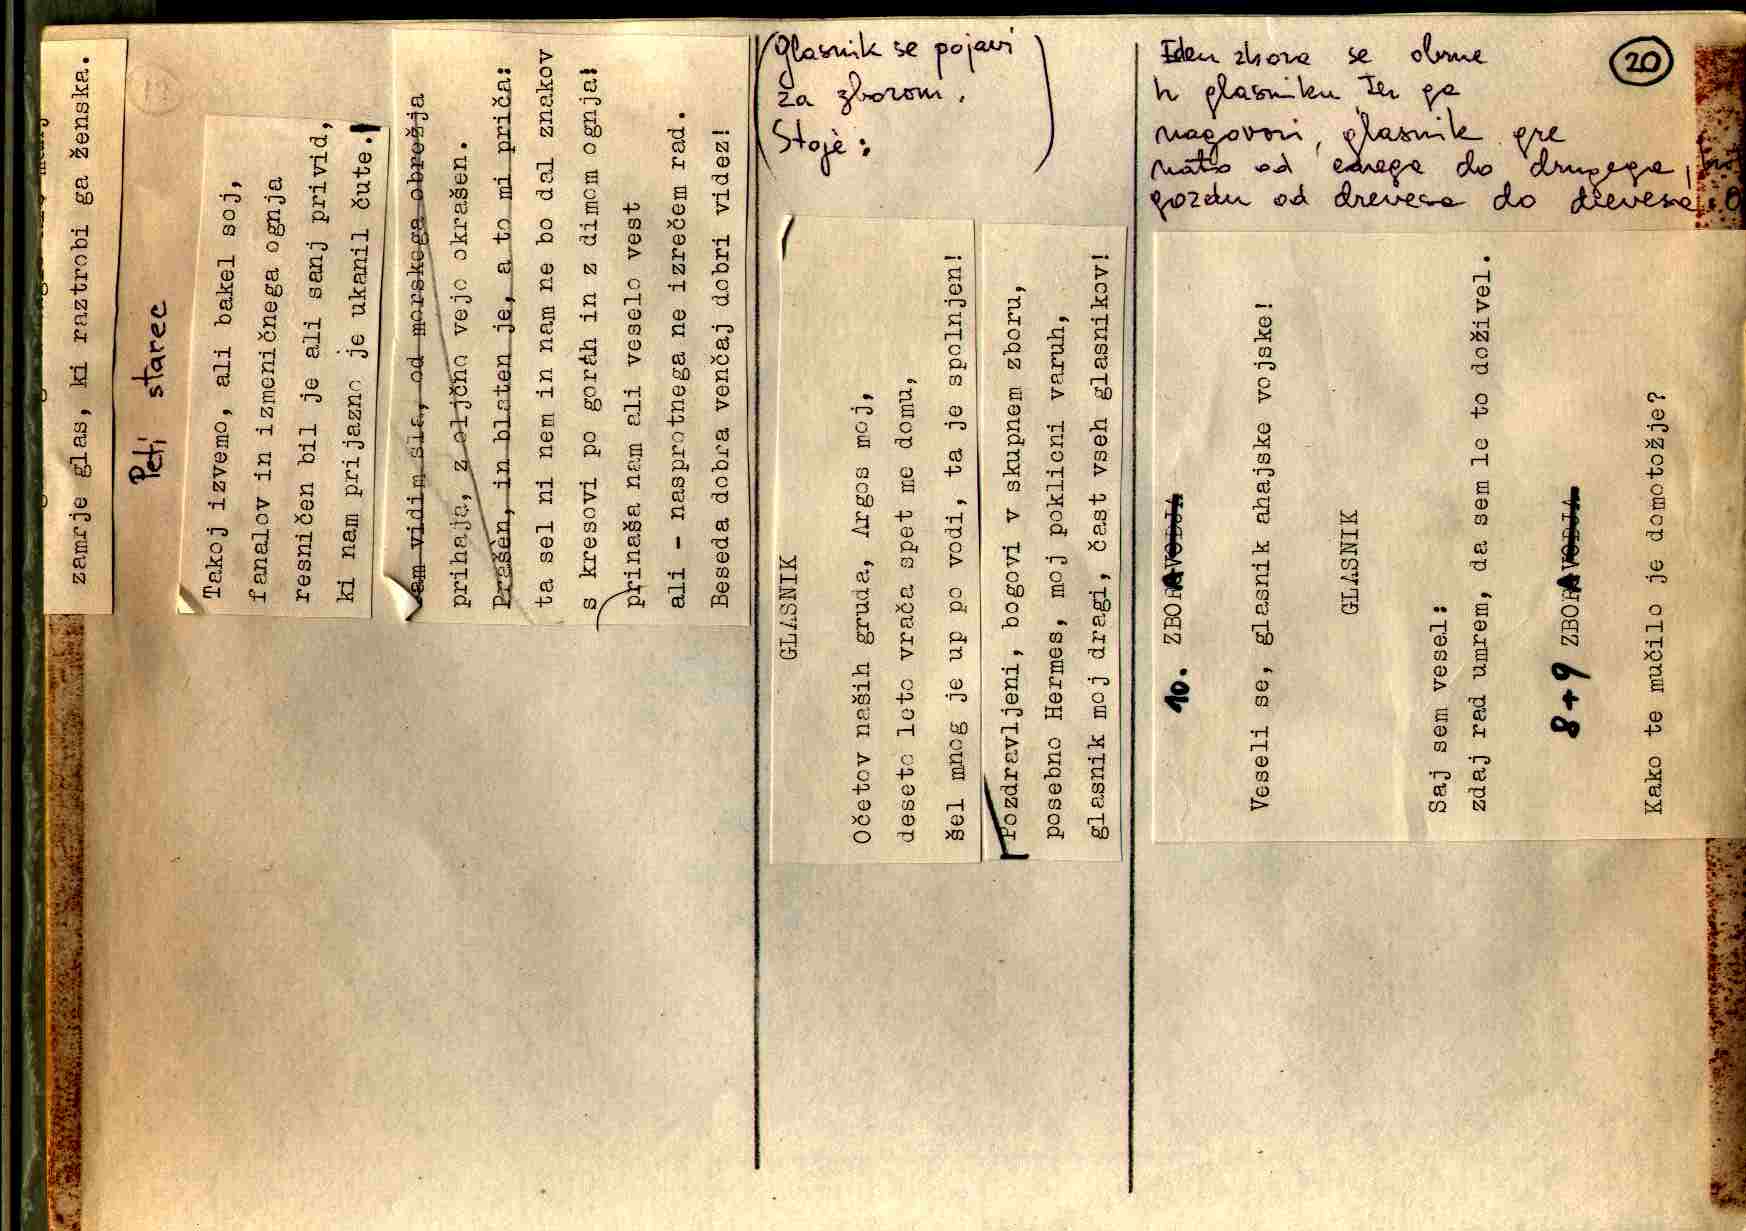 zamrje glas, ki raztrobi ga ženska.
Peti starec
Takoj izvemo, ali bakel soj,
fanalov in izmeničnega ognja
resničen bil je ali sanj privid,
ki nam prijazno je ukanil čute.
vidim sla, od morskega obrežja
prihaja, z oljčno vejo okrašen.
Prašen, in blaten je, a to mi priča:
ta sel ni nem in nam ne bo dal znakov
s kresovi po gorah in z dimom ognja!
prinaša nam ali veselo vest
ali - nasprotnega ne izrečem rad.
Beseda dobra venčaj dobri videz!
Glasnik se pojavi
za zborom.
Stoje:
GLASNIK
Očetov naših gruda, Argos moj,
deseto leto vrača spet me domu,
šel mnog je up po vodi, ta je spolnjen!
Pozdravljeni, bogovi v skupnem zboru,
posebno Hermes, moj poklicni varuh,
glasnik moj dragi, čast vseh glasnikov!
20
Iden zbora se obrne
k glasniku ter ga
nagovori, glasnik gre
nato od enega do drugega,
gozdu od drevesa do drevesa
10. ZBORAVODJA
Veseli se, glasnik ahajske vojske!
GLASNIK
Saj sem vesel:
zdaj rad umrem, da sem le to doživel.
8+9 ZBORAVODJA
Kako te mučilo je domotožje?